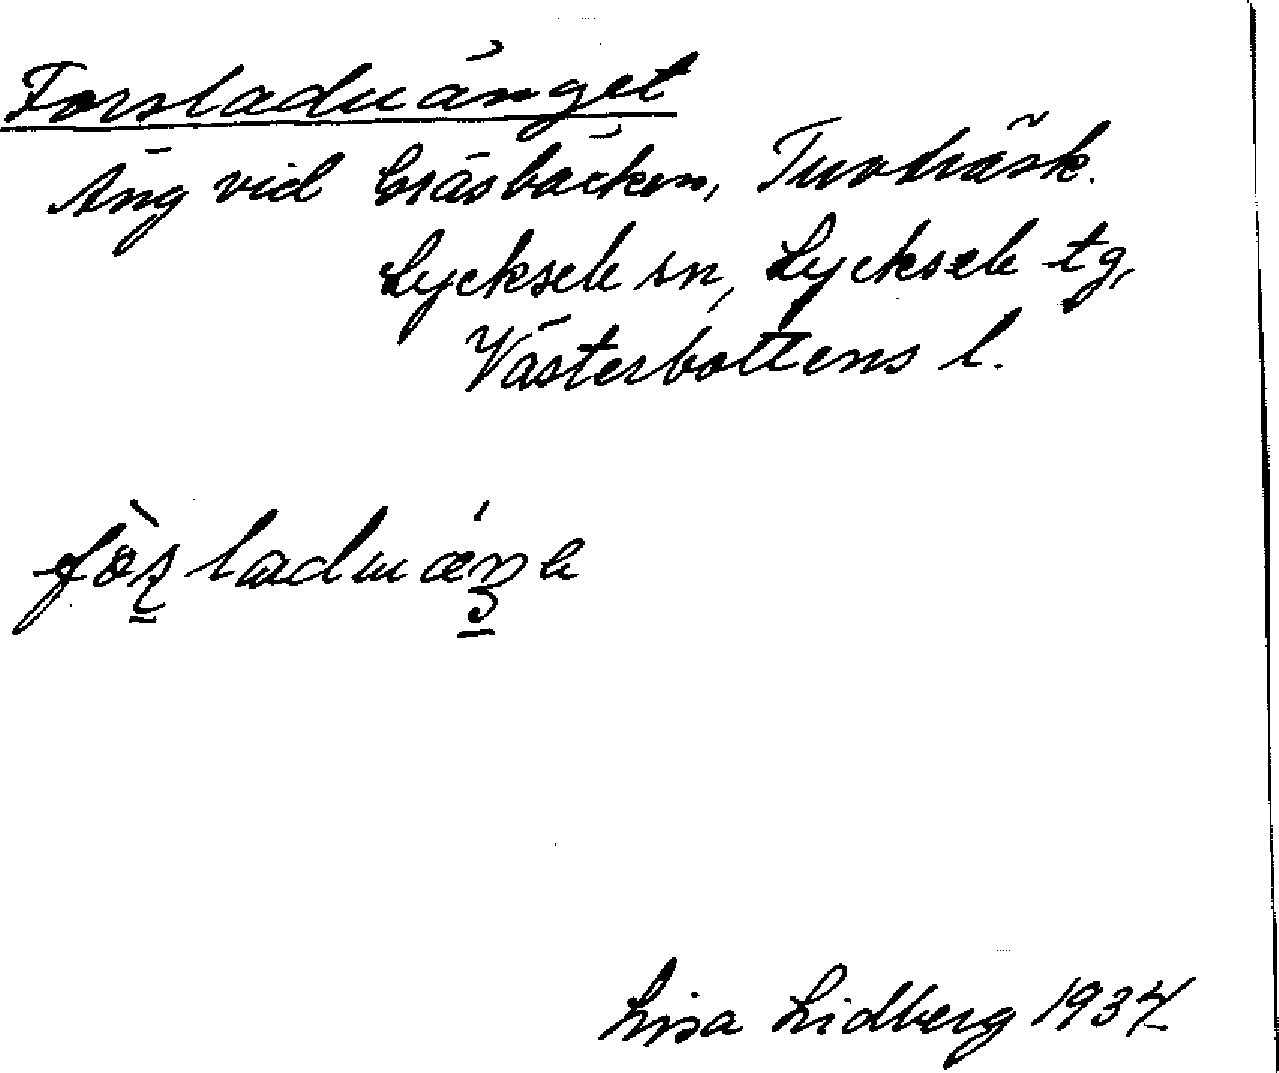 Forsladuänget
Äng vid Gräsbäcken, Tuvträsk.
Lycksele sn, Lycksele tg,
Västerbottens l.
Lisa Lidberg 1934